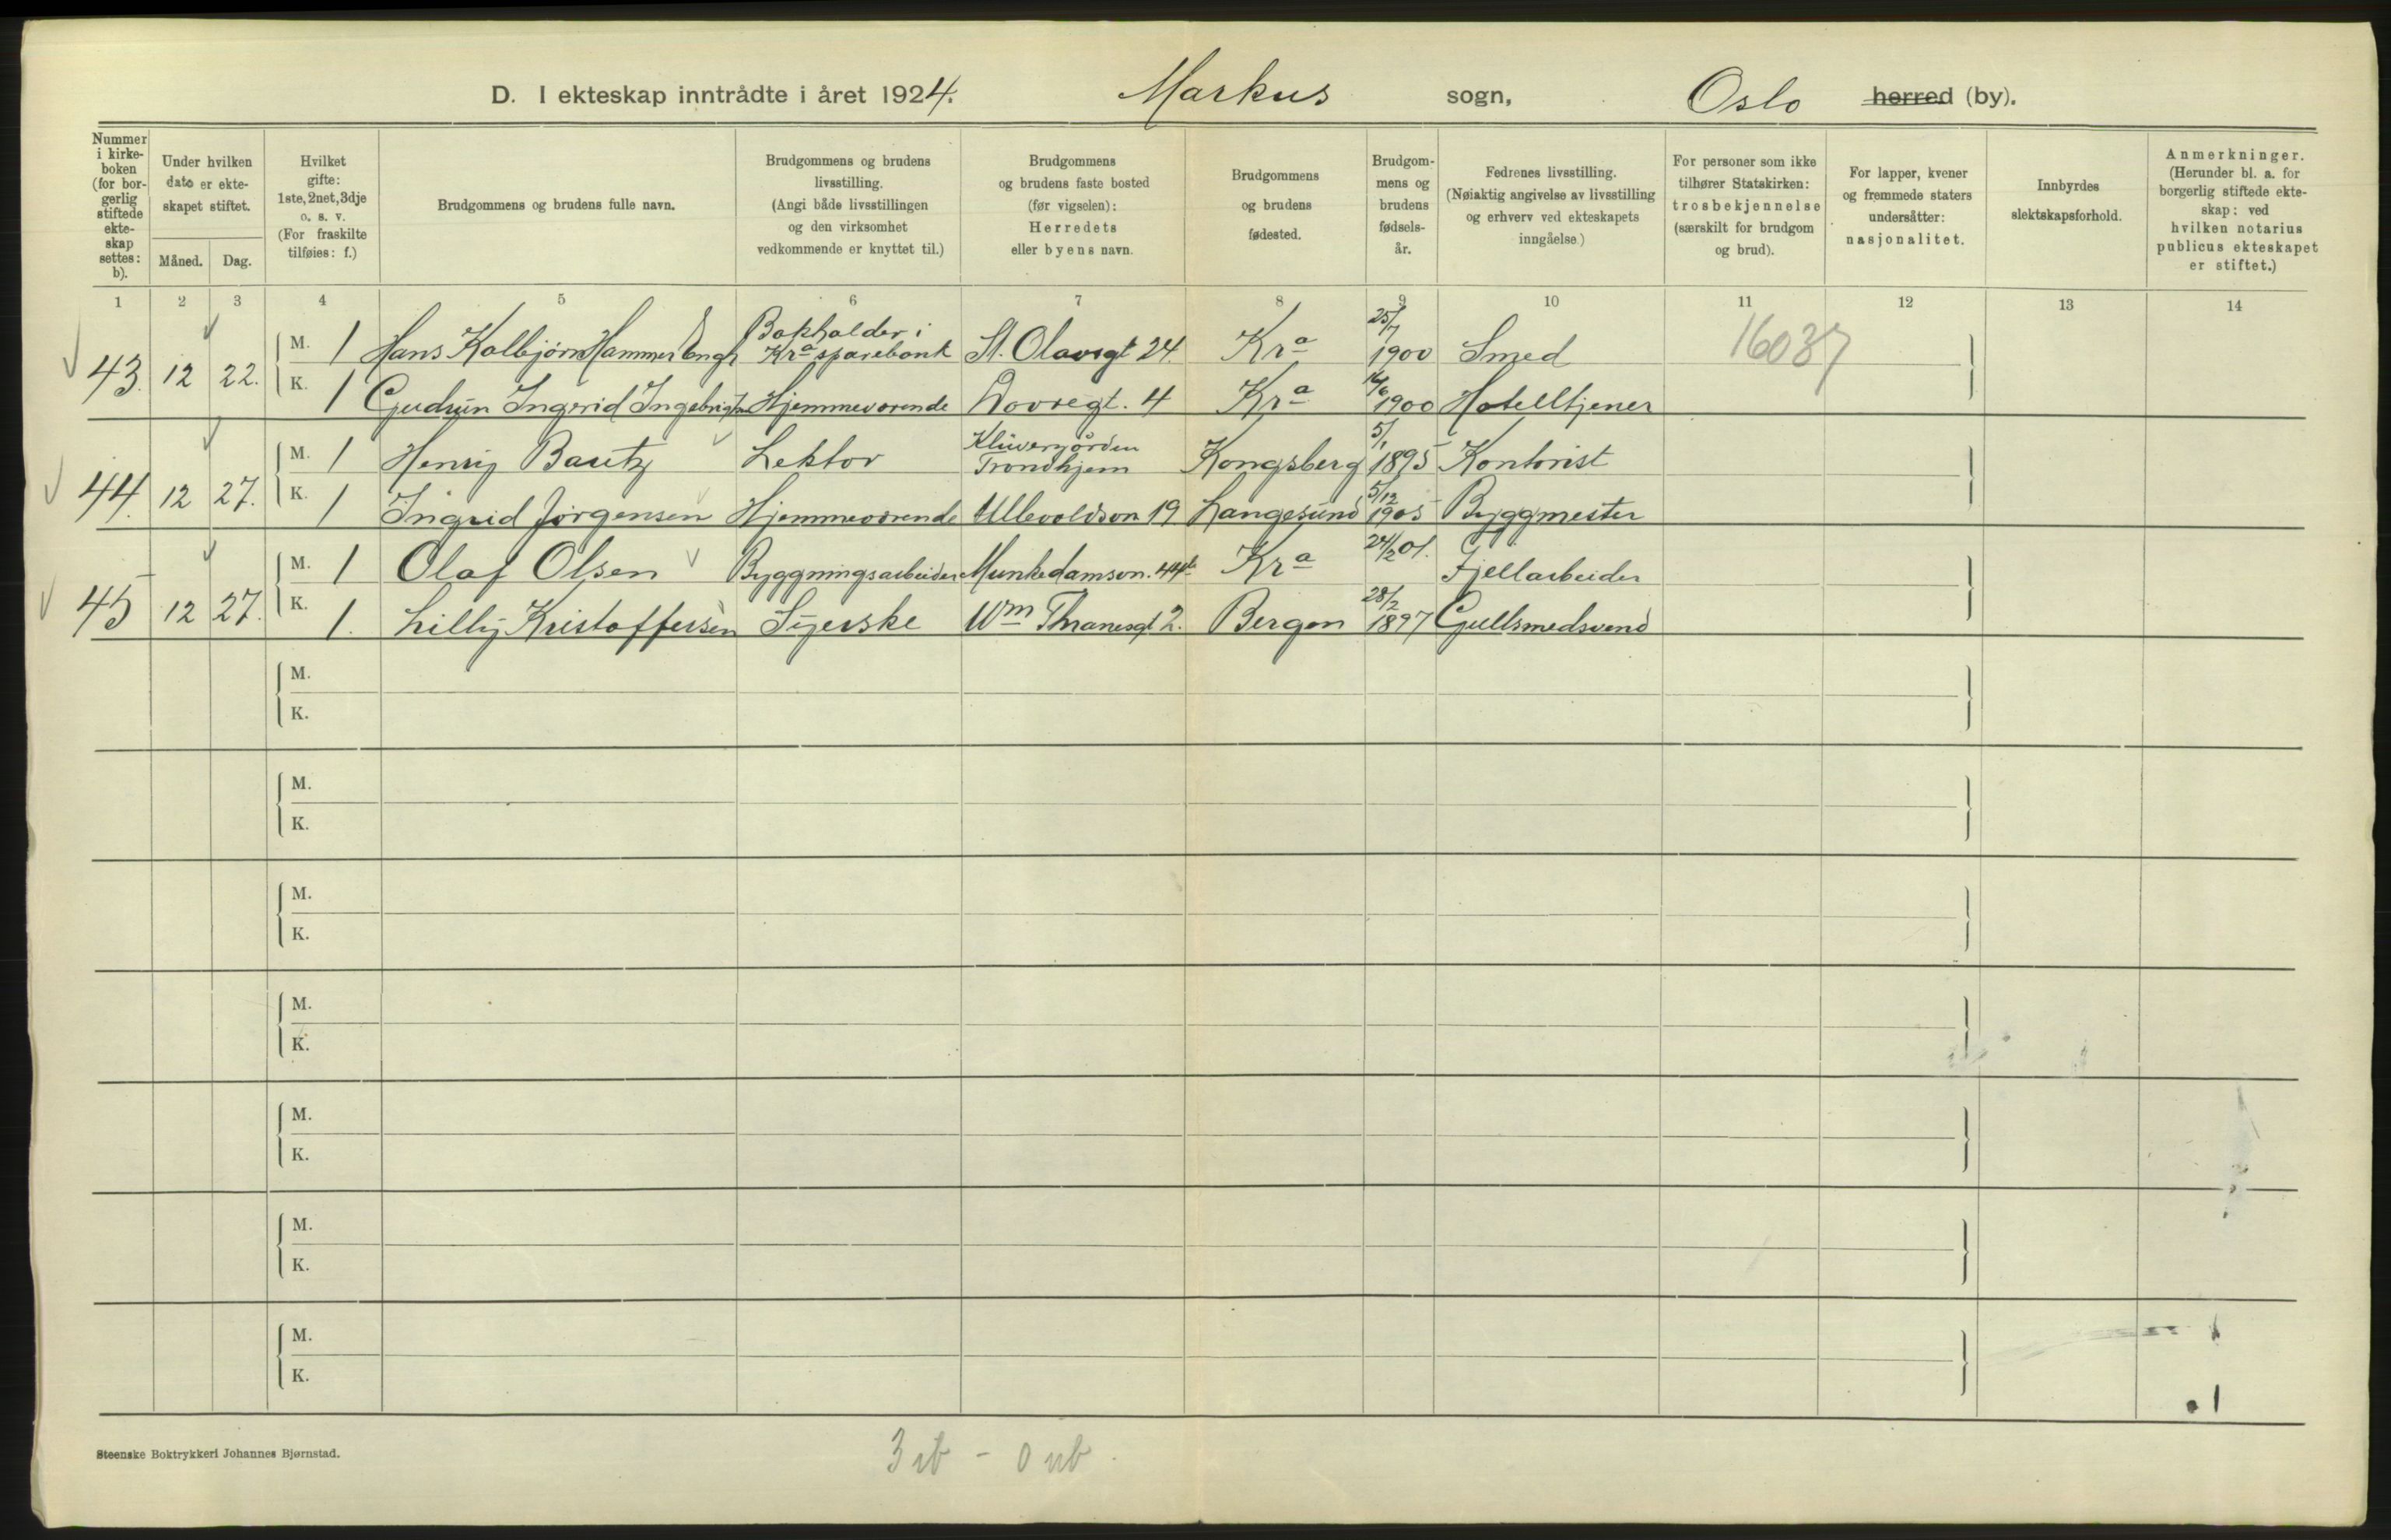 D. I ekteskap inntrådte i året 1924. Markus sogn, Oslo herred (by).
Nummer i kirke-boken (for bor-gerlig stiftede ekte-skap settes: b).
Under hvilken dato er ekte-skapet stiftet.
Måned. Dag.
Hvilket gifte: 1ste, 2net, 3dje o. s. v. (For fraskilte tilføies: f.)
Brudgommens og brudens fulle navn.
Brudgommens og brudens livsstilling. (Angi både livsstillingen og den virksomhet vedkommende er knyttet til.)
Brudgommens og brudens faste bosted (før vigselen): Herredets eller byens navn.
Brudgommens og brudens fødested.
Brudgom-mens og brudens fødsels-år.
Fedrenes livsstilling. (Nøiaktig angivelse av livsstilling og erhverv ved ekteskapets inngåelse.)
For personer som ikke tilhører Statskirken: trosbekjennelse (særskilt for brudgom og brud).
For lapper, kvener og fremmede staters undersåtter: nasjonalitet.
Innbyrdes slektskapsforhold.
Anmerkninger. (Herunder bl. a. for borgerlig stiftede ekte-skap: ved hvilken notarius publicus ekteskapet er stiftet.)
1 2 3 4 5 6 7 8 9 10 11 12 13 14
43. 12 22. M. 1 Hans Kolbjørn Hammer Engh Bokholder i Kra sparebank St. Olavsgt 24. Kra 25/7 1900 Smed 16037
K. 1 Gudrun Ingerid Ingebrigtsen Hjemmeværende Dovregt. 4 Kra 1900 Hotelltjener
44. 12 27. M. 1 Henrij Bautz Lektor Klüwergården Trondhjem Kongsberg 5/1 1895 Kontorist
K. 1 Ingrid Jørgensen Hjemmeværende Ullevoldsvn 19 Langesund 5/12 1905 Byggmester
45 12 27. M. 1 Olaf Olsen Bygningsarbeider Munkedamsvn. 44b Kra 24/2 01. Fjellarbeider
K. 1. Lilly Kristoffersen Syerske Wm Thranesgt 2. Bergen 28/2 1897 Gullsmedsvend
M.
K.
M.
K.
M.
K.
M.
K.
M.
K.
M.
K.
M.
K.
Steenske Boktrykkeri Johannes Bjørnstad.
3 ib - 0 ub.